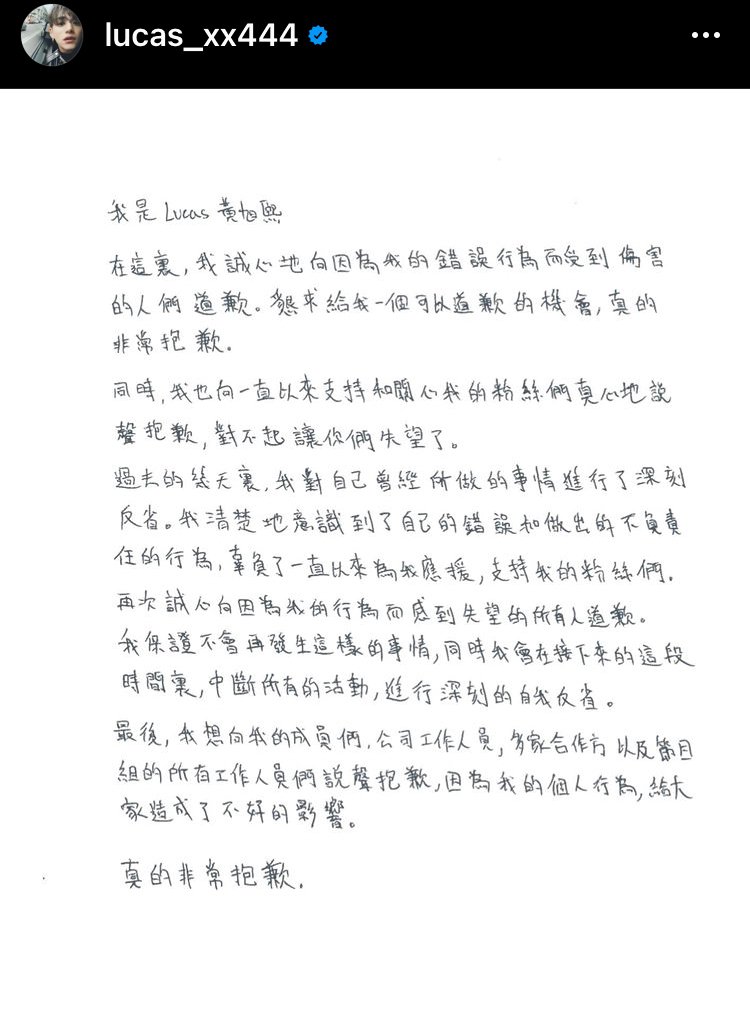 lucas_xx444
我是 Lucas 黃旭熙
在這裏，我誠心地向因為我的錯誤行為而受到傷害
的人們道歉。懇求給我一個可以道歉的機會，真的
非常抱歉。
同時，我也向一直以來支持和關心我的粉絲們真心地說
聲抱歉，對不起讓你們失望了。
過去的幾天裏，我對自己曾經所做的事情進行了深刻
反省。我清楚地意識到了自己的錯誤和做出的不負責
任的行為，辜負了一直以來為我應援，支持我的粉絲們．
再次誠心向因為我的行為而感到失望的所有人道歉。
我保證不會再發生這樣的事情，同時我會在接下來的這段
時間裏，中斷所有的活動，進行深刻的自我反省。
最後，我想向我的成員們，公司工作人員，多家合作方以及節目
組的所有工作人員們說聲抱歉，因為我的個人行為，給大
家造成了不好的影響。
真的非常抱歉．